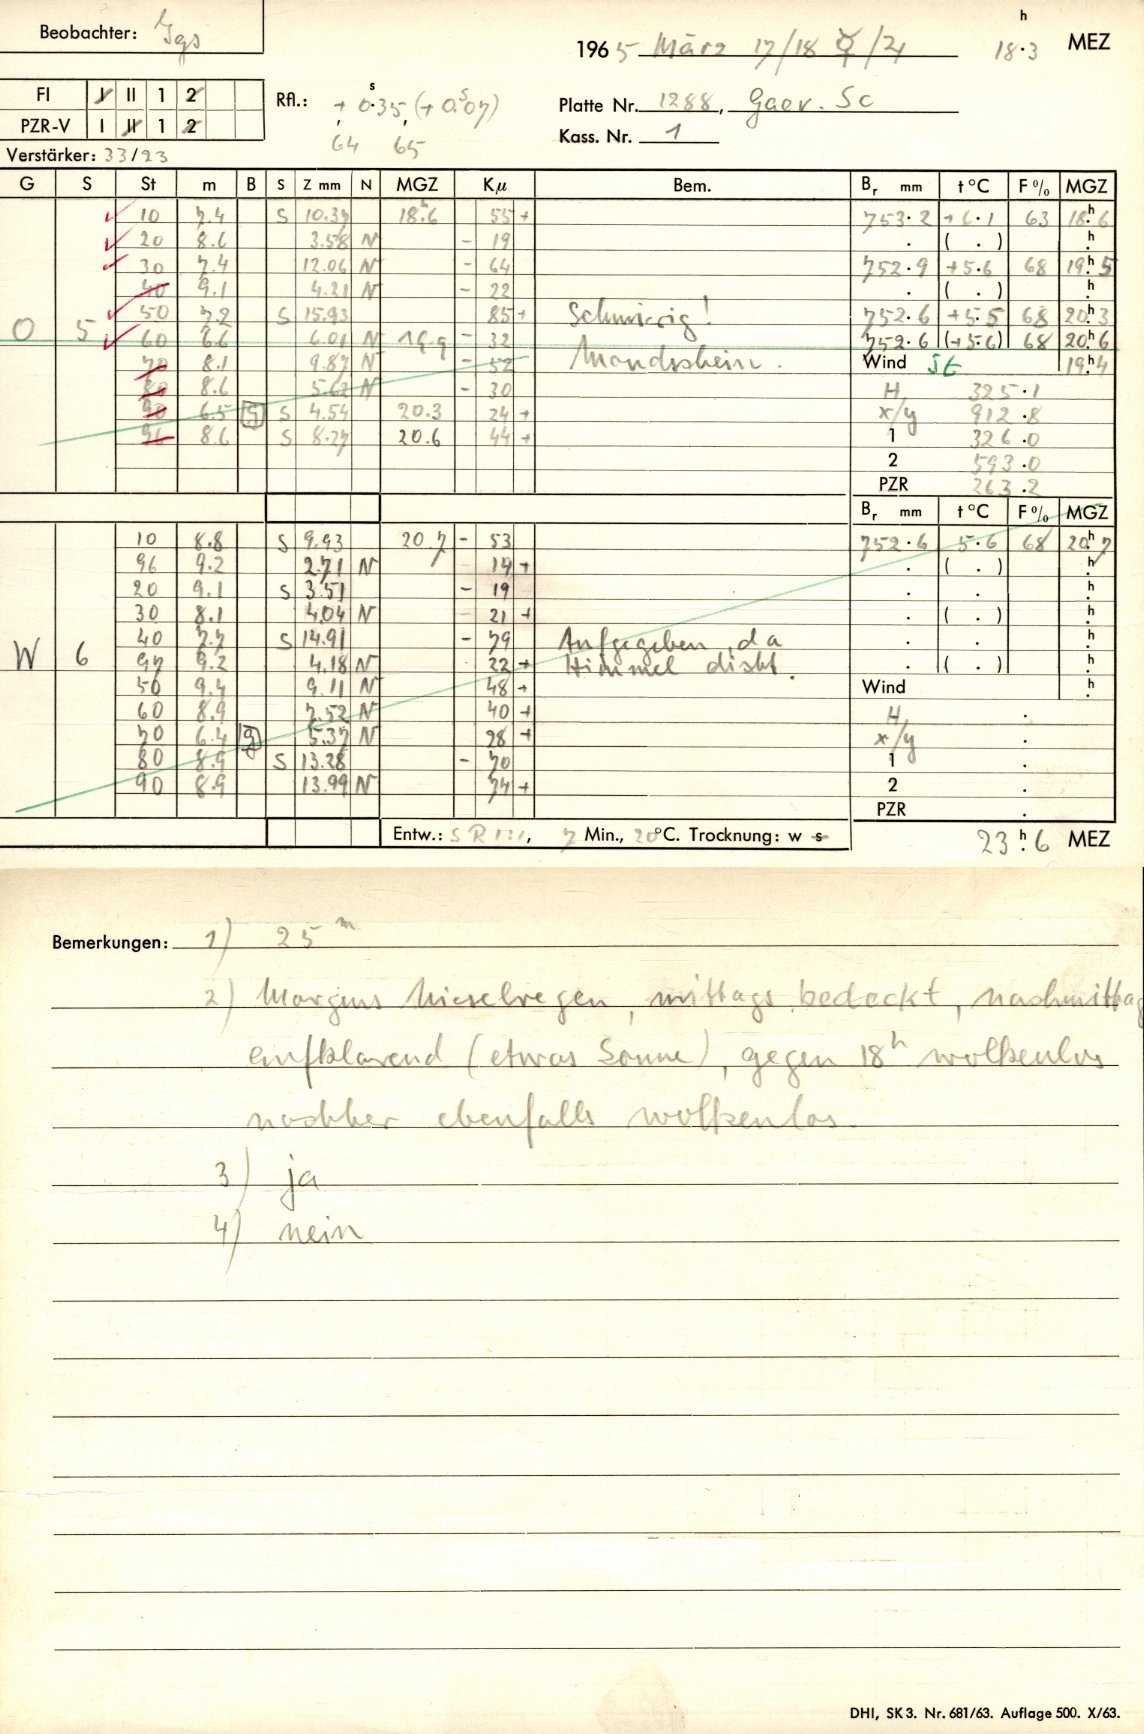 Beobachter: Jgs
196 5 März 17/18 ☿/♃ 18.3 h MEZ
FI I II 1 2
PZR-V I II 1 2
Rfl.: + 0.35 s, (+ 0.07 s)
64 65
Platte Nr. 1288, Gaev. Sc
Kass. Nr. 1
Verstärker: 33/23
G S St m B S Z mm N MGZ Kμ Bem. Br mm t °C F % MGZ
10 7.4 S 10.37 18.6 h 55 + 753.2 +6.1 63 18.6 h
20 8.6 3.58 N - 19 . ( . ) h
30 7.4 12.06 N - 64 752.9 +5.6 68 19.5 h
40 9.1 4.21 N - 22 . ( . ) h
50 7.2 S 15.93 85 + Schmierig! 752.6 +5.5 68 20.3 h
O 5 60 6.6 6.01 N 19.9 - 32 752.6 (+5.6) 68 20.6 h
70 8.1 9.87 N - 52 Mondschein. Wind St 19.4 h
80 8.6 5.62 N - 30 H, 325.1
90 6.5 S 4.54 20.3 24 + x/y 912.8
96 8.6 S 8.27 20.6 44 + 1 326.0
2 593.0
PZR 263.2
Br mm t °C F % MGZ
10 8.8 S 9.93 20.7 - 53 752.6 5.6 68 20.7 h
96 9.2 2.71 N 14 + . ( . ) h
20 9.1 S 3.51 - 19 . . h
30 8.1 4.04 N 21 + . ( . ) h
40 7.7 S 14.91 - 79 Aufgegeben, da . . h
W 6 97 9.2 4.18 N 22 + Himmel dicht. . ( . ) h
50 9.4 9.11 N 48 + Wind h
60 8.9 7.52 N 40 + H, .
70 6.4 9 5.37 N 28 + x/y .
80 8.9 S 13.28 - 70 1 .
90 8.9 13.99 N 74 + 2 .
PZR .
Entw.: S R 1:1, 7 Min., 20°C. Trocknung: w s 23.6 h MEZ
Bemerkungen: 1) 25 m
2) Morgens Nieselregen, mittags bedeckt, nachmittag
aufklarend (etwas Sonne), gegen 18 h wolkenlos
nachher ebenfalls wolkenlos.
3) ja
4) nein
DHI, SK 3. Nr. 681/63. Auflage 500. X/63.